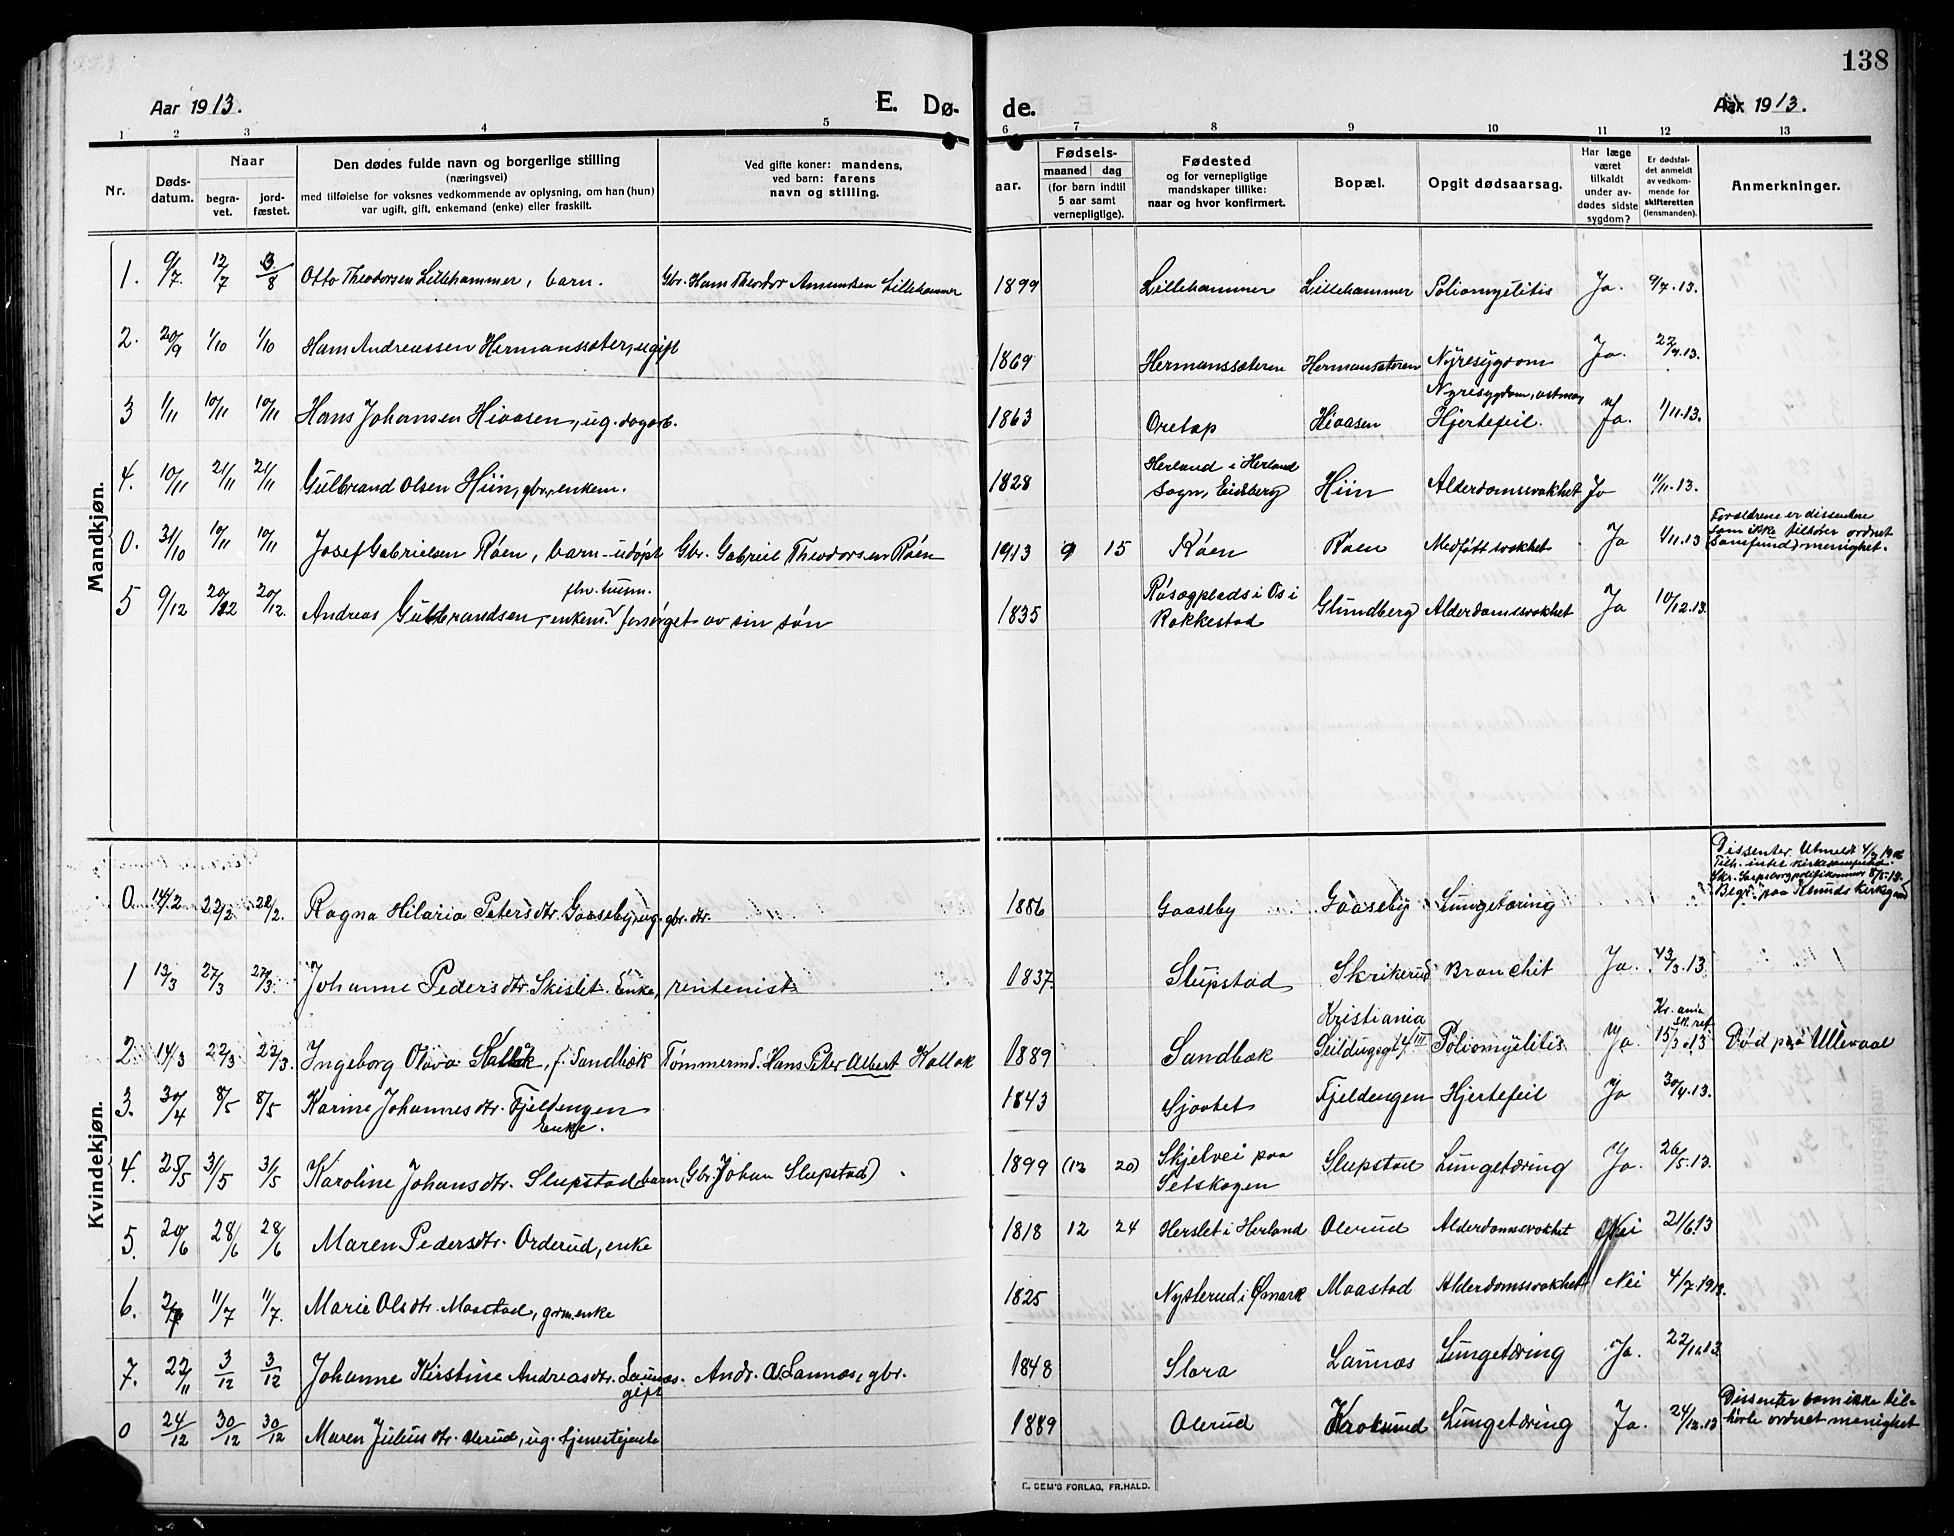 138
Aar 1913. E. Dø- de. Aar 1913.
1 2 3 4 5 6 7 8 9 10 11 12 13
Nr. Døds-datum. Naar begra-vet. jord-fæstet. Den dødes fulde navn og borgerlige stilling (næringsvei) med tilføielse for voksnes vedkommende av oplysning, om han (hun) var ugift, gift, enkemand (enke) eller fraskilt. Ved gifte koner: mandens, ved barn: farens navn og stilling. aar. Fødsels- maaned dag (for barn indtil 5 aar samt vernepligtige). Fødested og for vernepligtige mandskaper tillike: naar og hvor konfirmert. Bopæl. Opgit dødsaarsag. Har læge været tilkaldt under av-dødes sidste sygdom? Er dødsfal-det anmeldt av vedkom-mende for skifteretten (lensmanden). Anmerkninger.
Mandkjøn.
1. 9/7. 12/7 3/8 Otto Theodorsen Lillehammer, barn. Gbr. Hans Theodor Amundsen Lillehammer 1899 Lillehammer Lillehammer Poliomyelitis Ja. 9/7.13.
2. 20/9 1/10 1/10 Hans Andreassen Hermanssæter, ugift 1869 Hermanssæteren Hermansæteren Nyresygdom Ja. 22/9.13.
3 1/11 10/11 10/11 Hans Johansen Hiaasen, ug. dagarb. 1863 Oretap Hiaasen Nyresygdom, astma, Hjertefeil. Ja. 1/11.13.
4. 10/11 21/11 21/11 Gulbrand Olsen Hiin, gbr., enkem. 1828 Herland i Herland Sogn, Eidsberg Hiin Alderdomssvakhet Ja 11/11.13.
0. 31/10 10/11 10/11 Josef Gabrielsen Røen, barn - udøpt Gbr. Gabriel Theodorsen Røen 1913 9 15 Røen Røen Medføtt svakhet Ja 1/11.13 Forældrene er dissentere som ikke tilhører ordnet (samfund) menighet.
5 9/12 20/12 20/12. Andreas Gulbrandsen, enkem. fhv. husm. forsørget av sin søn 1835 Røsægplads i Os i Rakkestad Glundberg Alderdomssvakhet Ja 10/12.13.
Kvindekjøn.
0. 14/2 22/2 22/2. Ragna Hilaria Petersdtr. Gaaseby, ug. gbr. dtr. 1886 Gaaseby Gaaseby Lungetæring Dissenter. Utmeldt 4/3 1906 Tilh. intet kirkesamfund. Skr. Sarpsborg politikammer 8/5-13. Begr. paa Klunds kirkegaard
1 13/3 27/3 27/3. Johanne Pedersdtr. Skislet. Enke, rentenist 1837. Slupstad Skrikerud Bronchit Ja. 13/3.13
2. 14/3 22/3 22/3. Ingeborg Olava Kallak, f. Sandbæk Tømmermd. Hans Peter Albert Kallak 1889 Sandbæk Kristiania Seildugsgt 4 III Poliomyelitis Ja. 15/3.13 Død på Ullevaal
3. 30/4 8/5 8/5 Karine Johannesdtr. Fjeldengen Enke. 1843 Sjøvtet Fjeldengen Hjertefeil Ja 30/4.13.
4. 25/5 31/5 31/5 Karoline Johansdtr. Slupstad barn (Gbr. Johan Slupstad) 1899 (12 20) Skjelvei paa Setskogen Slupstad Lungetæring Ja. 26/5.13.
5. 20/6 28/6 28/6 Maren Pedersdtr. Orderud, enke 1818 12 24 Herslet i Herland Olerud Alderdomssvakhet Nei 21/6.13
6. 11/7 11/7. Marie Olsdtr. Maastad, grm. enke 1825 Nysterud i Ømark Maastad Alderdomssvakhet Nei 4/7.1913.
7. 22/11 3/12 3/12 Johanne Kirstine Andreasdtr. Launæs. gift Andr. O. Launæs, gbr. 1848 Slora Launæs Lungetæring Ja. 22/11.13
0 24/12 30/12 30/12 Maren Juliusdtr. Olerud, ug. tjenestejente 1889 Olerud Kroksund Lungetæring Ja. 24/12.13 Dissenter som ikke til-hørte ordnet menighet
E. SEM'S FORLAG, FR.HALD.